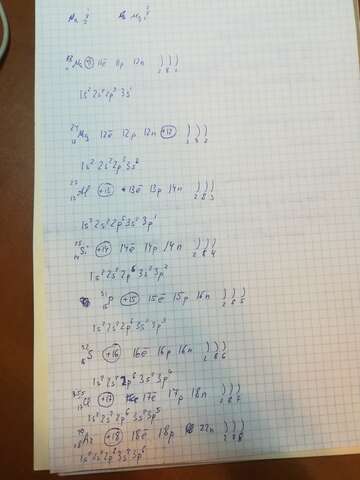 ²³₁₁Na (+11) 11ē 11p 12n ) ) ) 2 8 1
1s² 2s² 2p⁶ 3s¹
²⁴₁₂Mg 12ē 12p 12n (+12) ) ) ) 2 8 2
1s² 2s² 2p⁶ 3s²
²⁷₁₃Al (+13) 13ē 13p 14n ) ) ) 2 8 3
1s² 2s² 2p⁶ 3s² 3p¹
Si (+14) 14ē 14p 14n ) ) ) 2 8 4
1s² 2s² 2p⁶ 3s² 3p²
³¹₁₅P (+15) 15ē 15p 16n ) ) ) 2 8 5
1s² 2s² 2p⁶ 3s² 3p³
³²₁₆S (+16) 16ē 16p 16n ) ) ) 2 8 6
1s² 2s² 2p⁶ 3s² 3p⁴
Cl (+17) 17ē 17p 18n ) ) ) 2 8 7
1s² 2s² 2p⁶ 3s² 3p⁵
Ar (+18) 18ē 18p 22n ) ) ) 2 8 8
1s² 2s² 2p⁶ 3s² 3p⁶